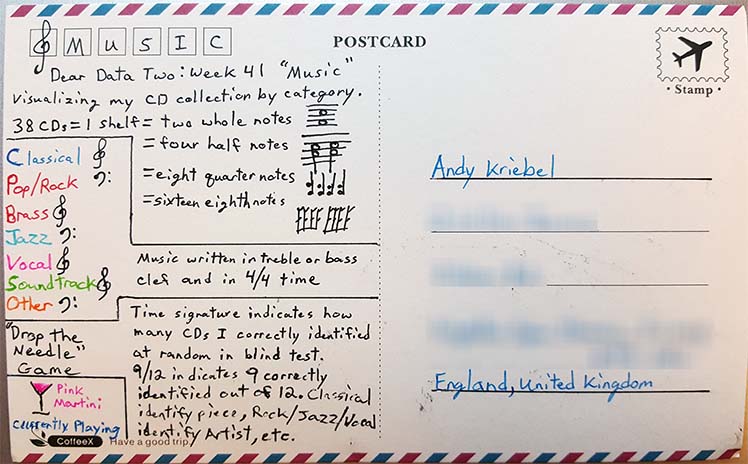 MUSIC
POSTCARD
Stamp
Dear Data Two: Week 41 "Music"
Visualizing my CD collection by category.
38 CDs = 1 shelf = two whole notes
= four half notes
= eight quarter notes
= sixteen eighth notes
Classical
Pop/Rock
Brass
Jazz
Vocal
Soundtrack
Other
Music written in treble or bass
clef and in 4/4 time
"Drop the
Needle"
Game
Time signature indicates how
many CDs I correctly identified
at random in blind test.
9/12 indicates 9 correctly
identified out of 12. Classical
identify piece, Rock/Jazz/Vocal
identify Artist, etc.
Pink
Martini
Currently Playing
CoffeeX
Have a good trip
Andy Kriebel
England, United Kingdom